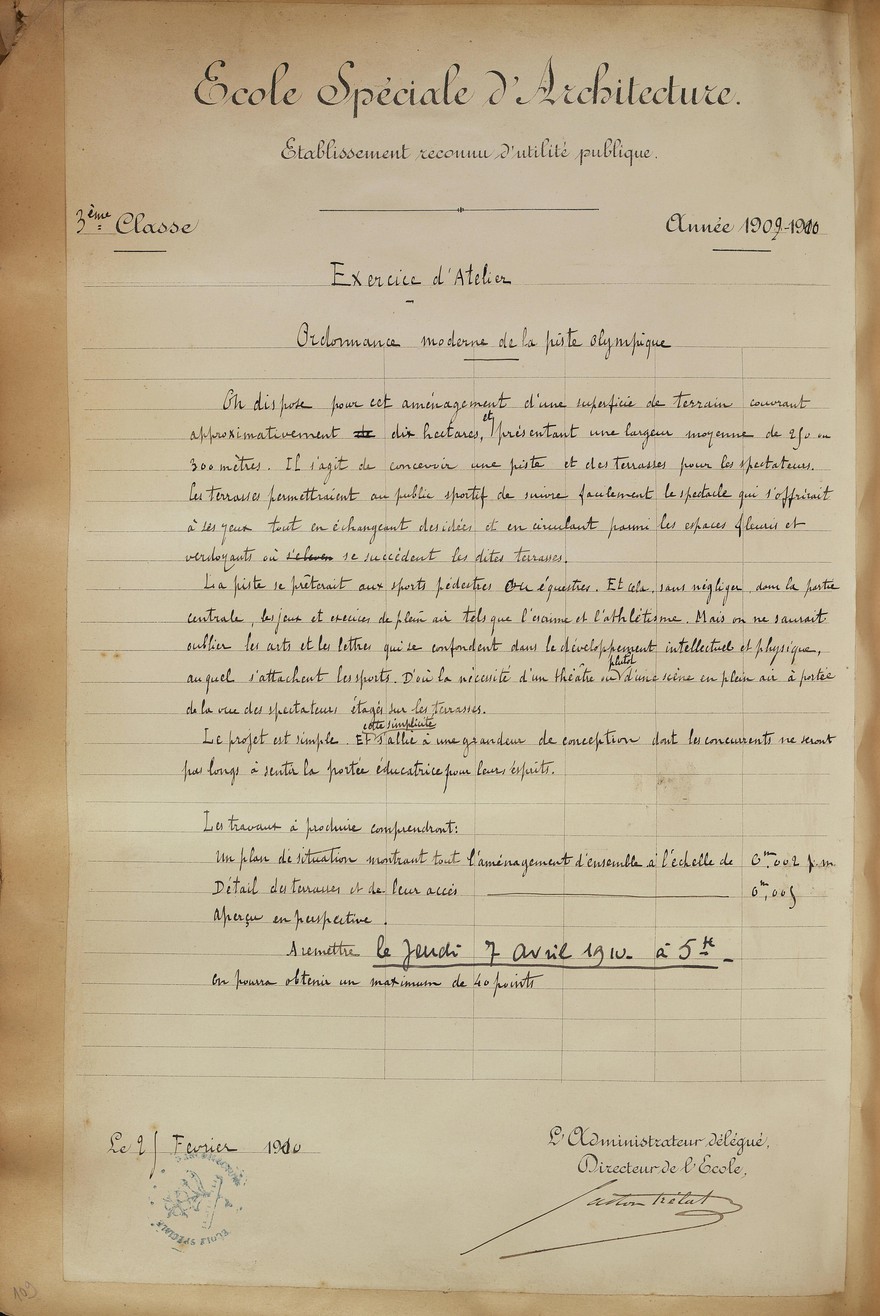 Ecole Spéciale d'Architecture.
Etablissement reconnu d'utilité publique.
3ème Classe
Année 1909-1910
Exercice d'Atelier
Ordonnance moderne de la piste olympique
On dispose pour cet aménagement d'une superficie de terrain couvrant
approximativement de dix hectares, et présentant une largeur moyenne de 250 ou
300 mètres. Il s'agit de concevoir une piste et des terrasses pour les spectateurs.
Les terrasses permettraient au public sportif de suivre facilement le spectacle qui s'offrirait
à ses yeux tout en échangeant des idées et en circulant parmi les espaces fleuris et
verdoyants où s'élèvent se succèdent les dites terrasses.
La piste se prêterait aux sports pédestres ou équestres. Et cela, sans négliger, dans la partie
centrale, les jeux et execices de plein air tels que l'escrime et l'athlétisme. Mais on ne saurait
oublier les arts et les lettres qui se confondent dans le développement intellectuel et physique,
auquel s'attachent les sports. D'où la nécessité d'un théâtre ou plutôt d'une scène en plein air à portée
de la vue des spectateurs étagés sur les terrasses.
Le projet est simple. Et cette simplicité s'allie à une grandeur de conception dont les concurrents ne seront
pas longs à sentir la portée éducatrice pour leurs esprits.
Les travaux à produire comprendront:
Un plan de situation montrant tout l'aménagement d'ensemble à l'échelle de 0m.002 p.m.
Détail des terrasses et de leur accès 0m,005
Aperçu en perspective.
A remettre le Jeudi 7 avril 1910 à 5 h
on pourra obtenir un maximum de 40 points
Le 25 Fevrier 1910
L'Administrateur délégué,
Directeur de l'Ecole,
Gaston Trélat
ECOLE SPECIALE
109